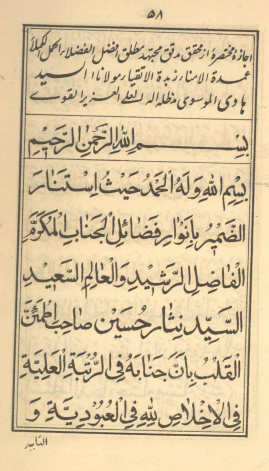 ۵۸
اجازهٔ مختصره از محقق مدقق مجتهد مطلق افضل الفضلا اکمل الکملا
عمدة الامناء زبدة الاتقیاء مولانا السید
هادی الموسوی مدظله العلی العزیز القوی
بسم الله الرحمن الرحیم
بِسْمِ اللهِ وَلَهُ الْحَمْدُ حَيْثُ اسْتَنَارَ
الضَّمِيرُ بِأَنْوَارِ فَضَائِلِ الْجَنَابِ الْمُكَرَّمِ
الْفَاضِلِ الرَّشِيدِ وَالْعَالِمِ السَّعِيدِ
السَّيِّدِ نِثَار حُسَيْن صَاحب اطْمَئَنَّ
الْقَلْبُ بِأَنَّ جَنَابَهُ فِي الرُّتْبَةِ الْعَلِيَّةِ
فِي الْإِخْلَاصِ لِلّٰهِ فِي الْعُبُودِيَّةِ وَ